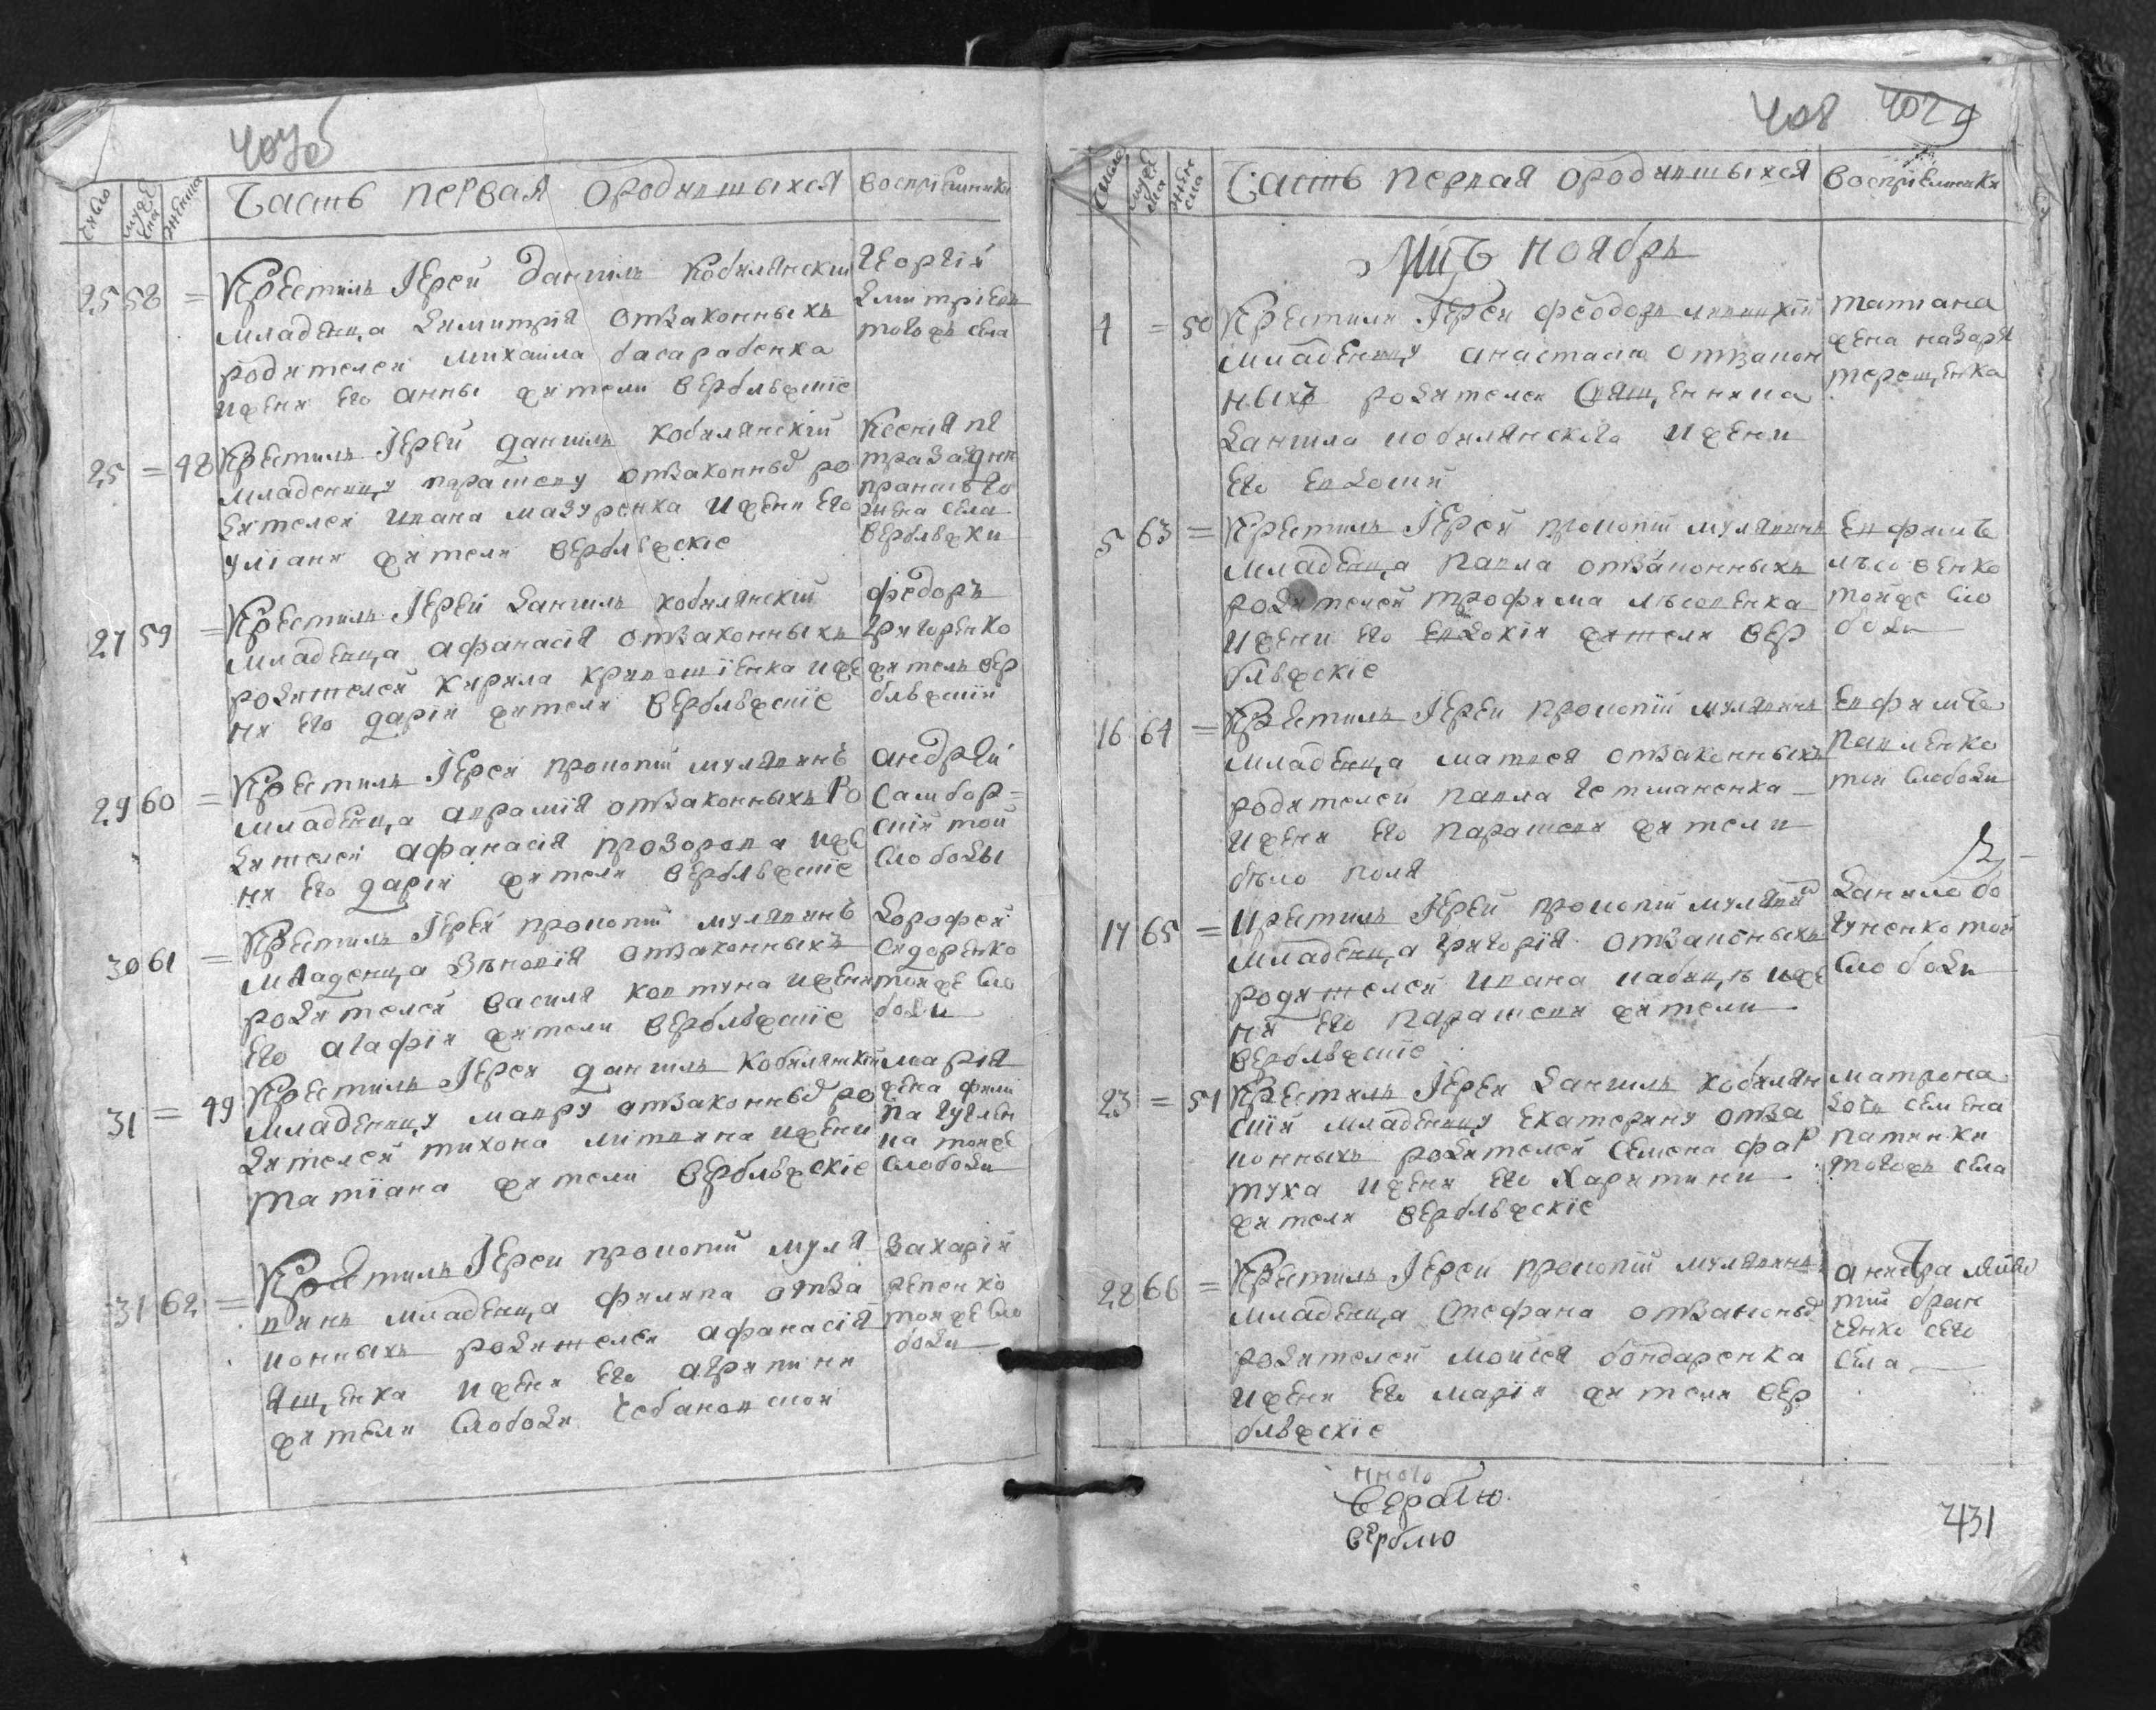 407об
число
муже
ска
женска
Часть первая ородившыхся
восприемники
25 58 = Крестилъ Іерей даниилъ Кобилянски
младенца димитрія отзаконныхъ
родителей михаила басарабенка
ижени его анны жители верблюжскіе
Георгій
тогожъ села
25 = 48 Крестилъ Іерей даниилъ кобилянскій
младеницу парашеву отзаконных ро
дителей ивана мазуренка ижени его
уліани жители верблюжскіе
Ксенія пе
села
верблюжки
27 59 = Крестилъ Іерей даниилъ кобилянскій
младенца афанасія отзаконныхъ
родителей кирила ижe
ни его дарiи жители верблюжскіе
федоръ
григоренко
житель вер
блюжскій
29 60 = Крестилъ Іерей прокопій мулявинъ
младенца аврамія отзаконныхъ ро
дителей афанасія прозорова иже
ни его дарiи жители верблюжскіе
андрей
самбор=
скій той
слободы
30 61 = Крестилъ Іерей прокопій мулявинъ
младенца зѣновія отзаконныхъ
родителей василя ковтуна ижени
его агафіи жители верблюжскіе
дорофей
сидоренко
тойже сло
боди
31 = 49 Крестилъ Іерей даниилъ кобилянскій
младеницу мавру отзаконных ро
дителей тихона литвина ижени
татіана жители верблюжскіе
марія
жена фили
па
ка тойже
слободи
31 62 = Крестилъ Іерей прокопій муля
винъ младенца филипа отза
конныхъ родителей афанасія
ященка ижени его агрипини
жители слободи чобановской
захарій
репенко
тойже сло
боди
408 4029
число
муже
ска
жен
ска
Часть первая ородившыхся
восприемники
Мцъ ноябрь
4 = 50 Крестилъ Іерей феодоръ
младеницу анастасію отзакон
ныхъ родителей священника
даниила кобилянскаго ижени
его евдокiи
татiана
жена назаря
терещенка
5 63 = Крестилъ Іерей прокопій мулявинъ
младенца павла отзаконныхъ
родителей трофима лысовенка
ижени его евдокіи жители вер
блюжскіе
ефимъ
лысовенко
тойже сло
боди
16 64 = Крестилъ Іерей прокопій мулявинъ
младенца матвея отзаконныхъ
родителей павла гетманенка
ижени его парашеви жители
бѣло поля
ефимъ
павленко
той слободи
17 65 = Крестилъ Іерей прокопій мулявин
младенца григорія отзаконыхъ
родителей ивана иже
ни его парашеви жители
верблюжскіе
данило бо
гуненко той
слободи
23 = 51 Крестилъ Іерей даниилъ кобилян
скій младеницу екатерину отза
конныхъ родителей семена фар
туха ижени его харитини
жители верблюжскіе
матрона
дочь семена
патинки
тогожъ села
28 66 = Крестилъ Іерей прокопій мулявинъ
младенца стефана отзаконых
родителей мойсея бондаренка
ижени его маріи жители вер
блюжскіе
сего
села
много
верблю
верблю
431